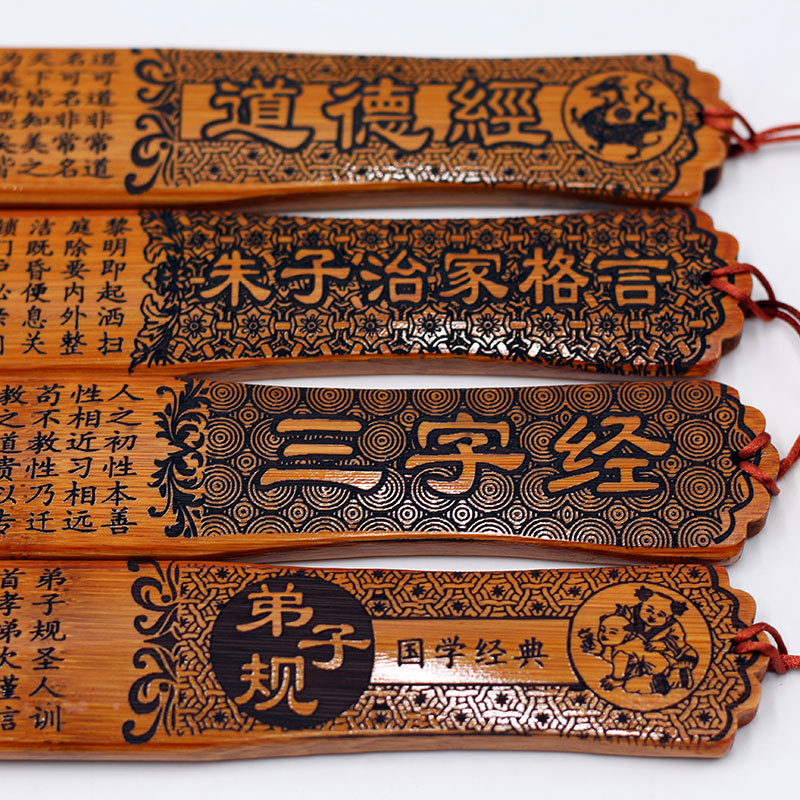 道德經
道可道非常道
名可名非常名
天下皆知美之
为美斯恶矣皆
朱子治家格言
黎明即起洒扫
庭除要内外整
洁既昏便息关
锁门户必亲
三字经
人之初性本善
性相近习相远
苟不教性乃迁
教之道贵以专
弟子规
国学经典
弟子规圣人训
首孝弟次谨信